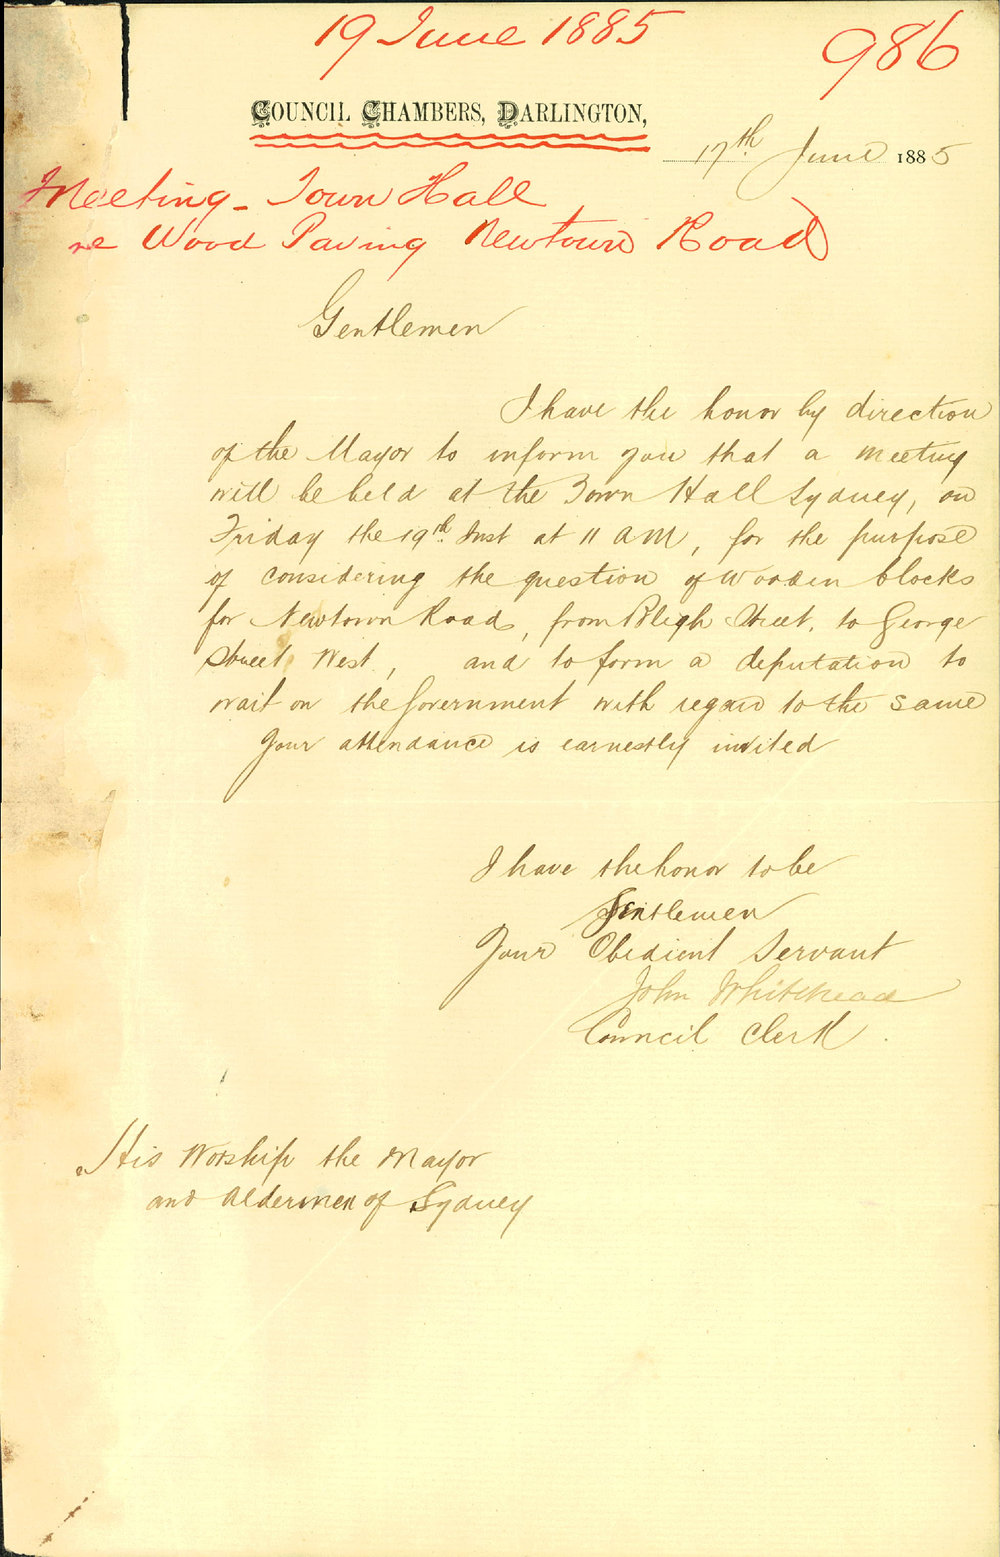 19 June 1885
986
COUNCIL CHAMBERS, DARLINGTON,
17th June 1885
Meeting - Town Hall
re Wood Paving Newtown Road
Gentlemen
I have the honor by direction
of the Mayor to inform you that a meeting
will be held at the Town Hall Sydney, on
Friday the 19th. Inst at 11 AM, for the purpose
of considering the question of wooden blocks
for Newtown Road, from Bligh Street, to George
Street West, and to form a deputation to
wait on the Government with regard to the same
Your attendance is earnestly invited
I have the honor to be
Gentlemen
Your Obedient Servant
John Whitehead
Council Clerk
His Worship the Mayor
and Aldermen of Sydney